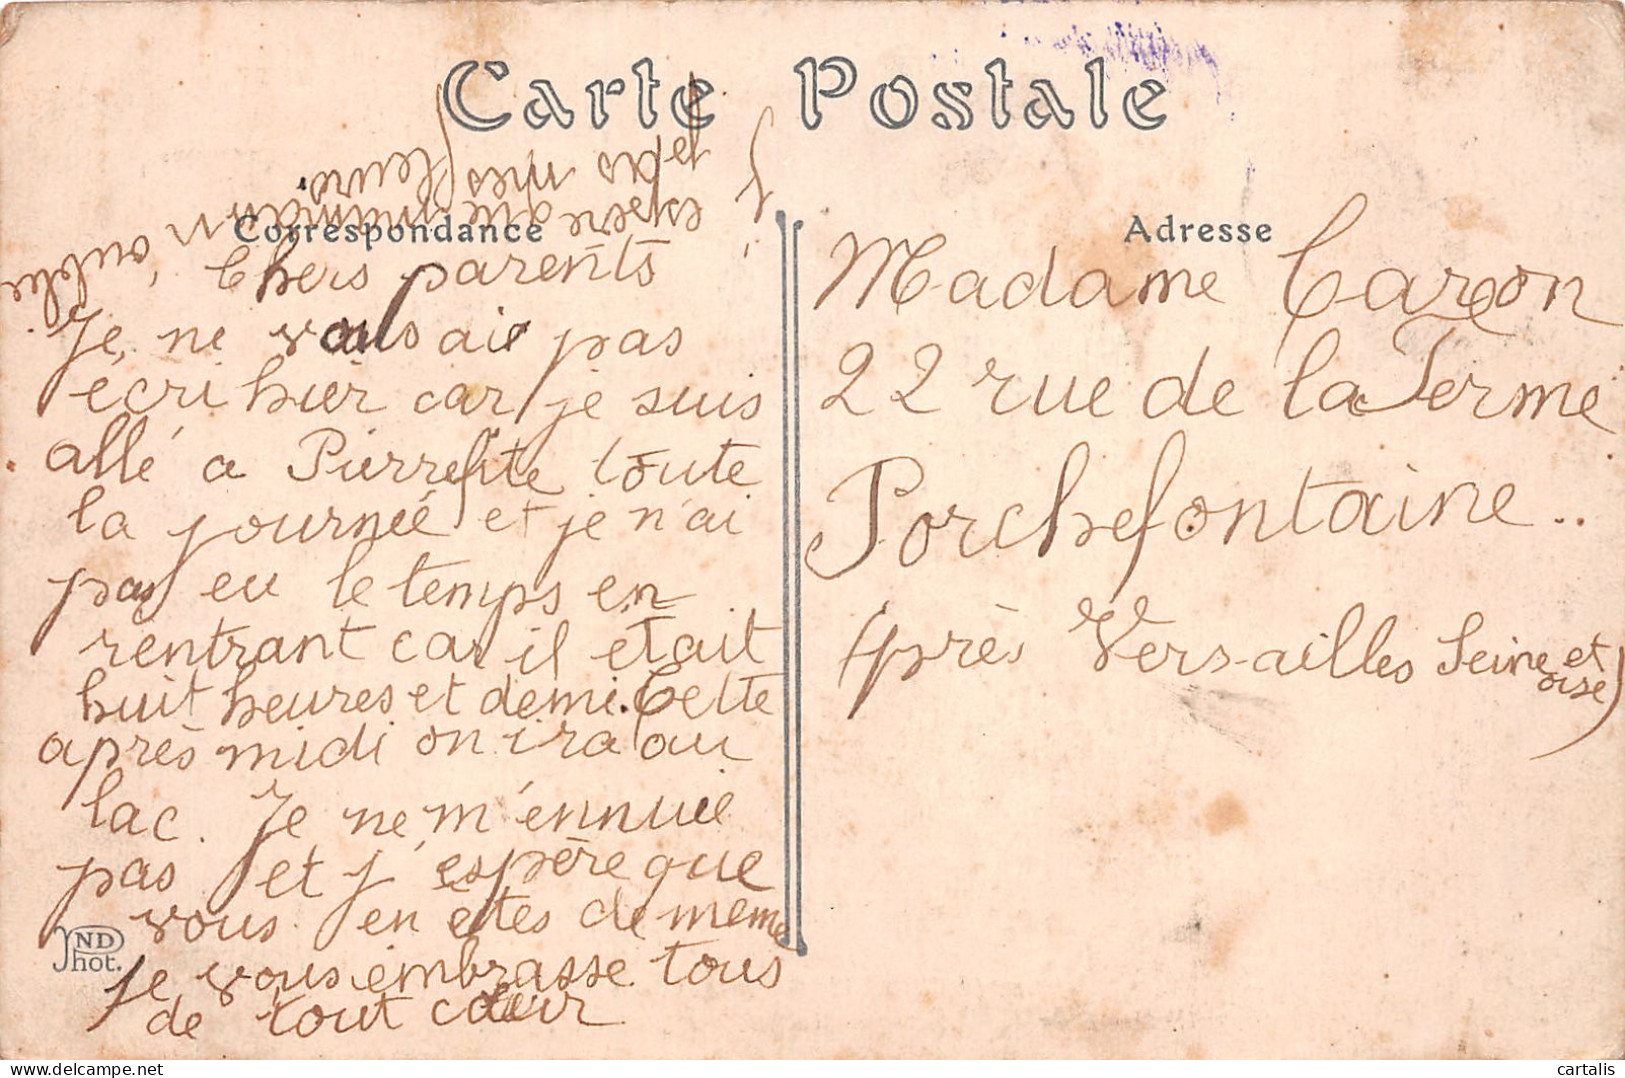 Carte Postale
Correspondance
Chers parents
Je ne vous ai pas
écri hier car je suis
allé a Pierrefite toute
la journée et je n'ai
pas eu le temps en
rentrant car il était
huit heures et demi. Cette
après midi on ira au
lac. Je ne m'ennuie
pas et j'espère que
vous en êtes de meme
Je vous embrasse tous
de tout cœur
J'
espère que maman n'oublie
pas mes
fleurs
Adresse
Madame Cazon
22 rue de la Ferme
Porchefontaine..
(près Versailles Seine et
oise)
ND
Phot.
cartalis